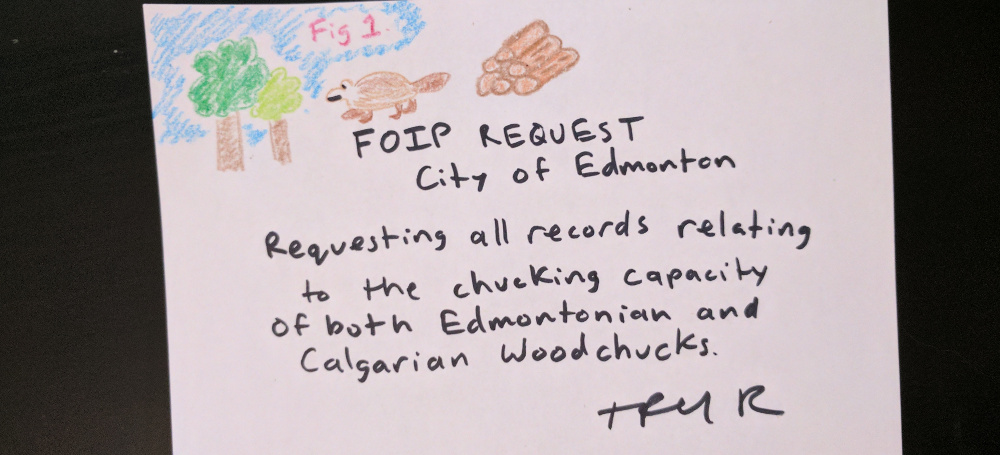 Fig 1.
FOIP REQUEST
City of Edmonton
Requesting all records relating
to the chucking capacity
of both Edmontonian and
Calgarian Woodchucks.